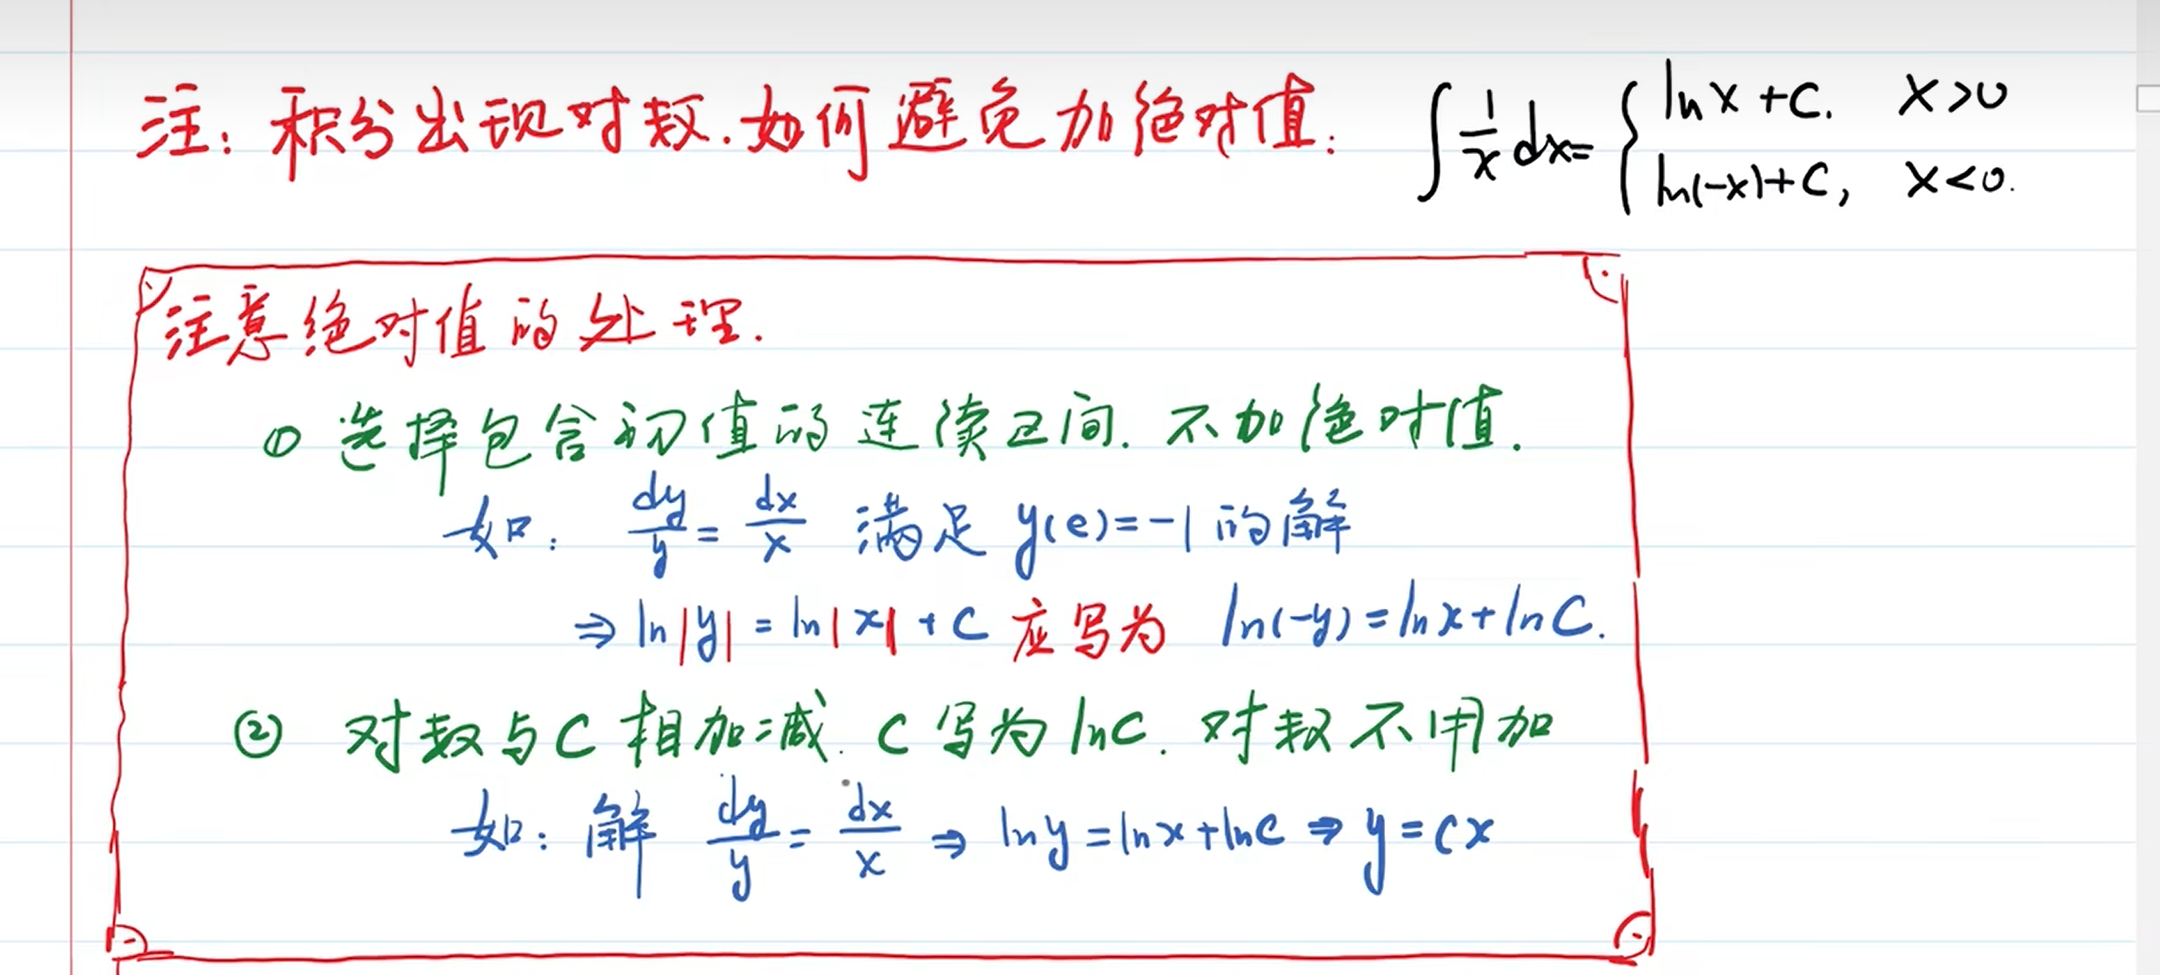 注：积分出现对数.如何避免加绝对值： ∫ 1/x dx = { ln x + C. x>0
ln(-x)+C, x<0.
注意绝对值的处理.
① 选择包含初值的连续区间.不加绝对值.
如： dy/y = dx/x 满足 y(e)=-1 的解
⇒ ln|y| = ln|x| + C 应写为 ln(-y) = ln x + ln C.
② 对数与C相加减.C写为lnC.对数不用加
如：解 dy/y = dx/x ⇒ ln y = ln x + ln C ⇒ y = Cx